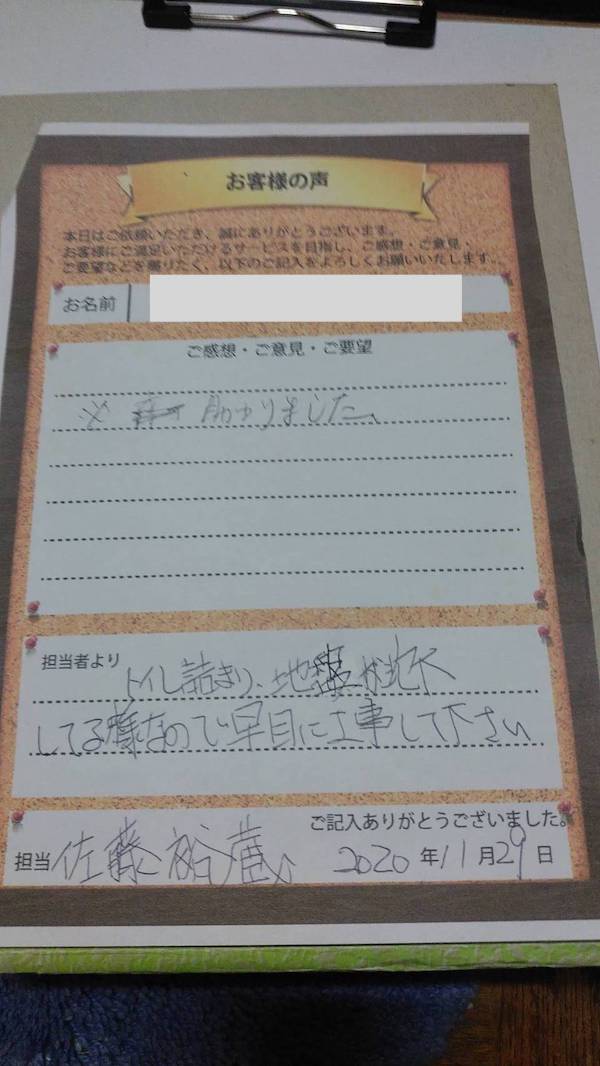 お客様の声
本日はご依頼いただき、誠にありがとうございます。
お客様にご満足いただけるサービスを目指し、ご感想・ご意見・
ご要望などを賜りたく、以下のご記入をよろしくお願いいたします。
お名前
ご感想・ご意見・ご要望
助かりました。
担当者より
トイレ詰まり、地盤が沈下
してる様なので早目に工事して下さい
ご記入ありがとうございました。
担当 佐藤裕蔵 2020年11月29日